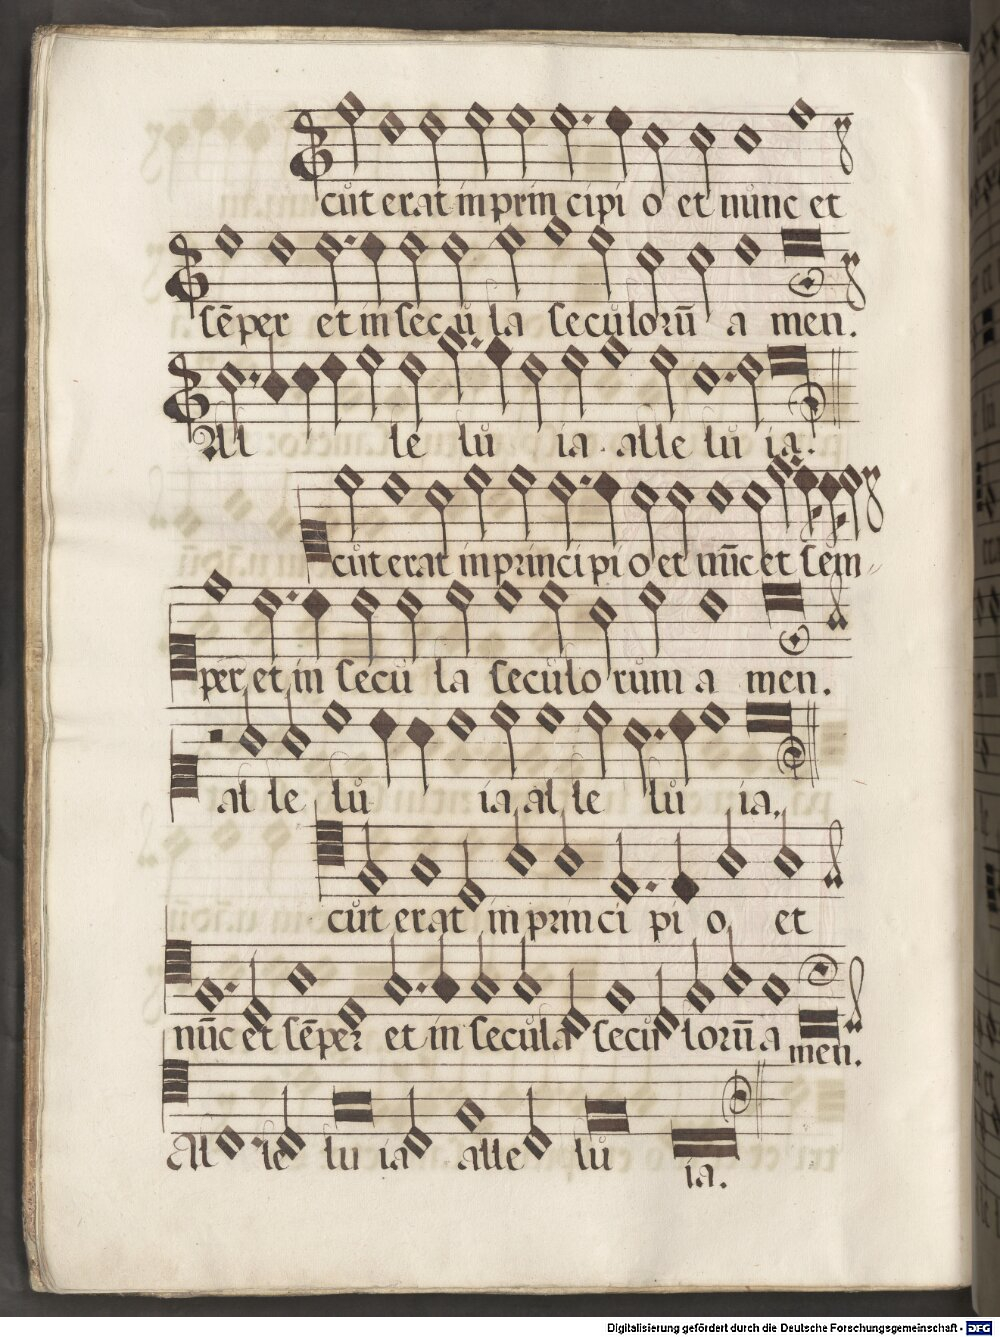 cut erat in prin cipi o et nunc et
sēper et in sec u la seculorū a men.
Al le lu ia alle lu ia.
cut erat in princi pi o et nūc et sem
per et in secu la seculo rum a men.
al le lu ia al le lu ia.
cut erat in prin ci pi o et
nūc et sēper et in secula secu lorū a men.
Al le lu ia alle lu ia.
Digitalisierung gefördert durch die Deutsche Forschungsgemeinschaft - DFG